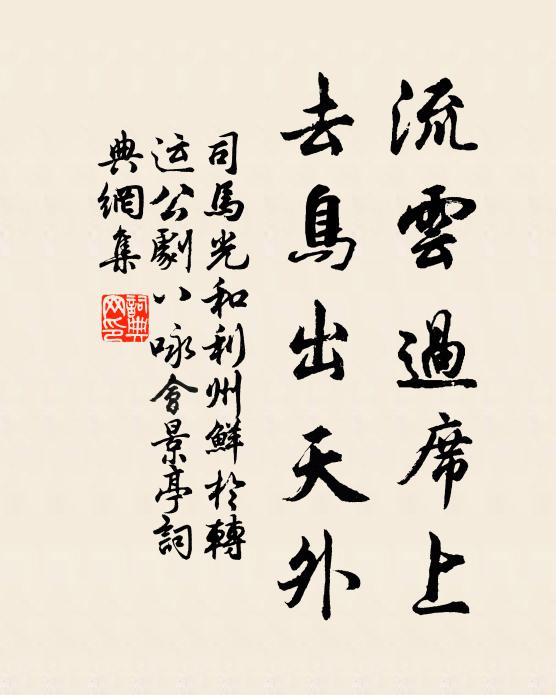 流雲過席上
去鳥出天外
司馬光和利州鮮於轉
运公劇八咏會景亭詞
典網集
詞典
网印